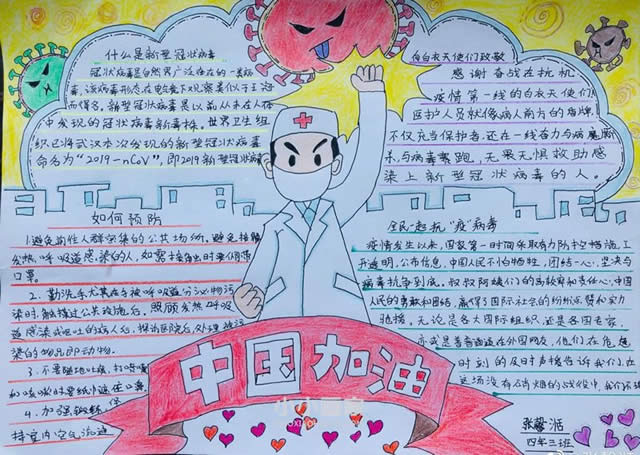 什么是新型冠状病毒
冠状病毒是自然界广泛存在的一类病
毒,该病毒形态在电镜下观察类似于王冠
而得名。新型冠状病毒是以前从未在人体
中发现的冠状病毒新毒株。世界卫生组
织已将武汉本次发现的新型冠状病毒
命名为“2019-nCoV”,即2019新型冠状病毒
向白衣天使们致敬
感谢奋战在抗机
疫情第一线的白衣天使们
医护人员就像病人前方的盾牌
不仅充当保护者,还在一线奋力与病魔
杀,与病毒赛跑,无畏无惧救助感
染上新型冠状病毒的人。
如何预防
1.避免前往人群密集的公共场所。避免接触
发热呼吸道感染的人,如需接触时要佩戴
口罩。
2.勤洗手尤其在手被呼吸道分泌物污
染时、触摸过公共设施后、照顾发热呼吸
道感染或呕吐的病人后、探访医院后、处理被污
染的物品即动物
3.不要随地吐痰,打喷嚏
和咳嗽时要
4.加强锻炼,保
持室内空气流通
全民一起抗“疫”病毒
疫情发生以来,国家第一时间采取有力防控措施,
开透明,公布信息,中国人民不怕牺牲,团结一心,坚决与
病毒抗争到底。叔叔阿姨们的高
人民的勇敢和团结,赢得了国际社会的纷纷点赞和实力
驰援。无论是各大国际组织,还是各国专家
亦或是普普通通在外国网友,他们在危
时刻的及时声援告诉我们,在
这场没有硝烟的战役中,我们不
中国加油
四年三班